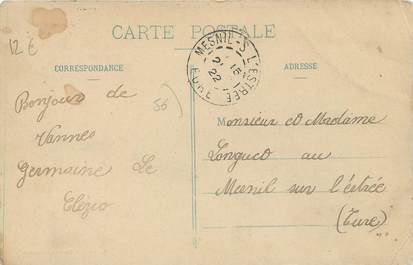 12 €
CARTE POSTALE
MESNIL-S-L'ESTRÉE
15
2
22
EURE
CORRESPONDANCE
ADRESSE
Bonjour de
56
Vannes
Germaine Le
Clézio
Monsieur et Madame
au
Mesnil sur l'éstrée
(Eure)